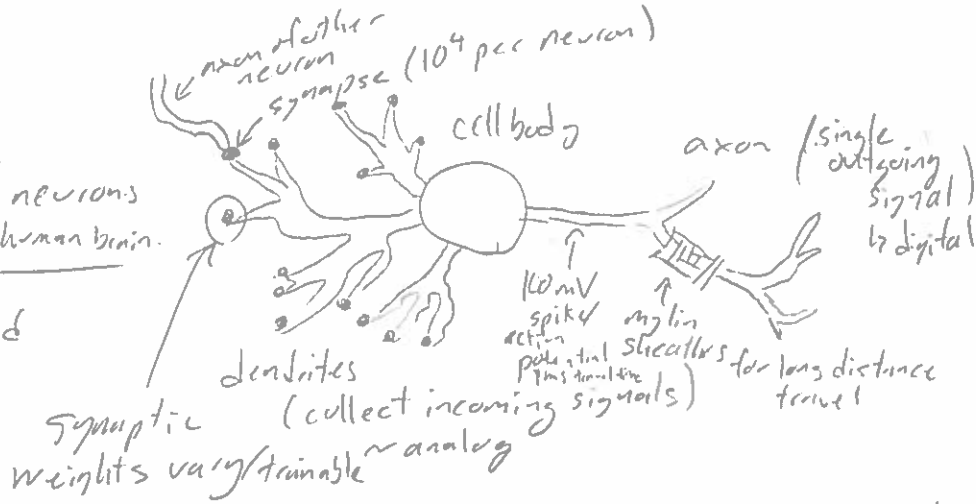 axon of other
neuron
synapse (10⁴ per neuron)
cell body
axon (single
outgoing
signal)
↳ digital
neurons
human brain.
d
100mV
spike/
action
potential
1ms
mylin
sheaths for long distance
travel
dendrites
(collect incoming signals)
~ analog
synaptic
weights vary/trainable